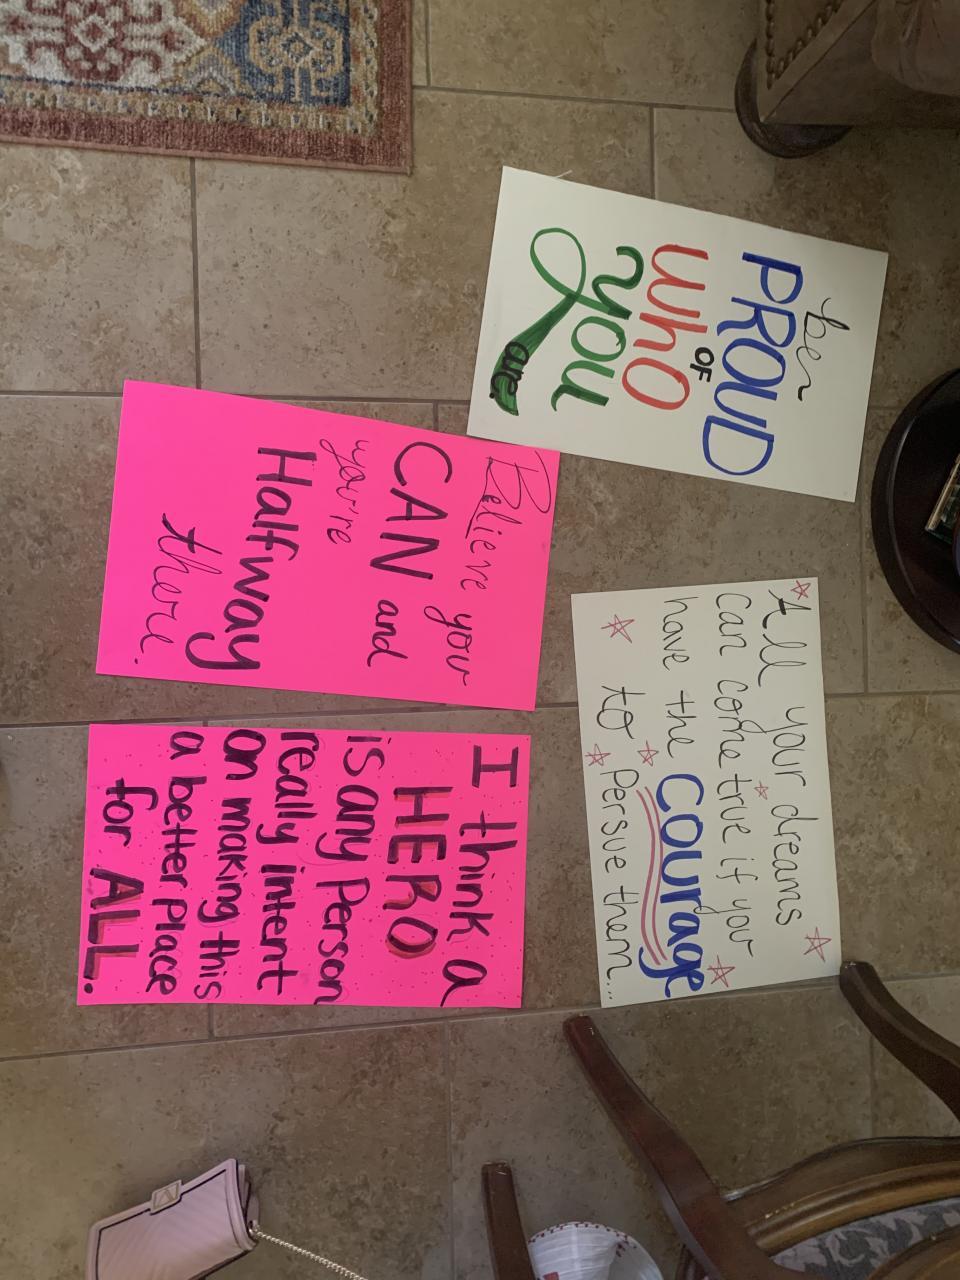 be
PROUD
OF
WhO
you
are.
Believe you
CAN and
you're
Halfway
there.
All your dreams
can come true if you
have the courage
to persue them...
I think a
HERO
is any Person
really intent
on making this
a better place
for ALL.